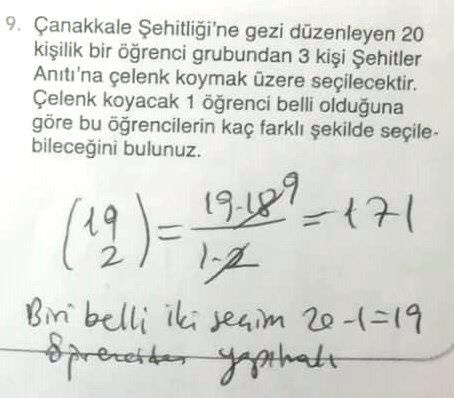 9. Çanakkale Şehitliği'ne gezi düzenleyen 20
kişilik bir öğrenci grubundan 3 kişi Şehitler
Anıtı'na çelenk koymak üzere seçilecektir.
Çelenk koyacak 1 öğrenci belli olduğuna
göre bu öğrencilerin kaç farklı şekilde seçile-
bileceğini bulunuz.
(19 2) = 19·18 9 / 1·2 = 171
Biri belli iki seçim 20-1=19
öğrenciden yapılmalı